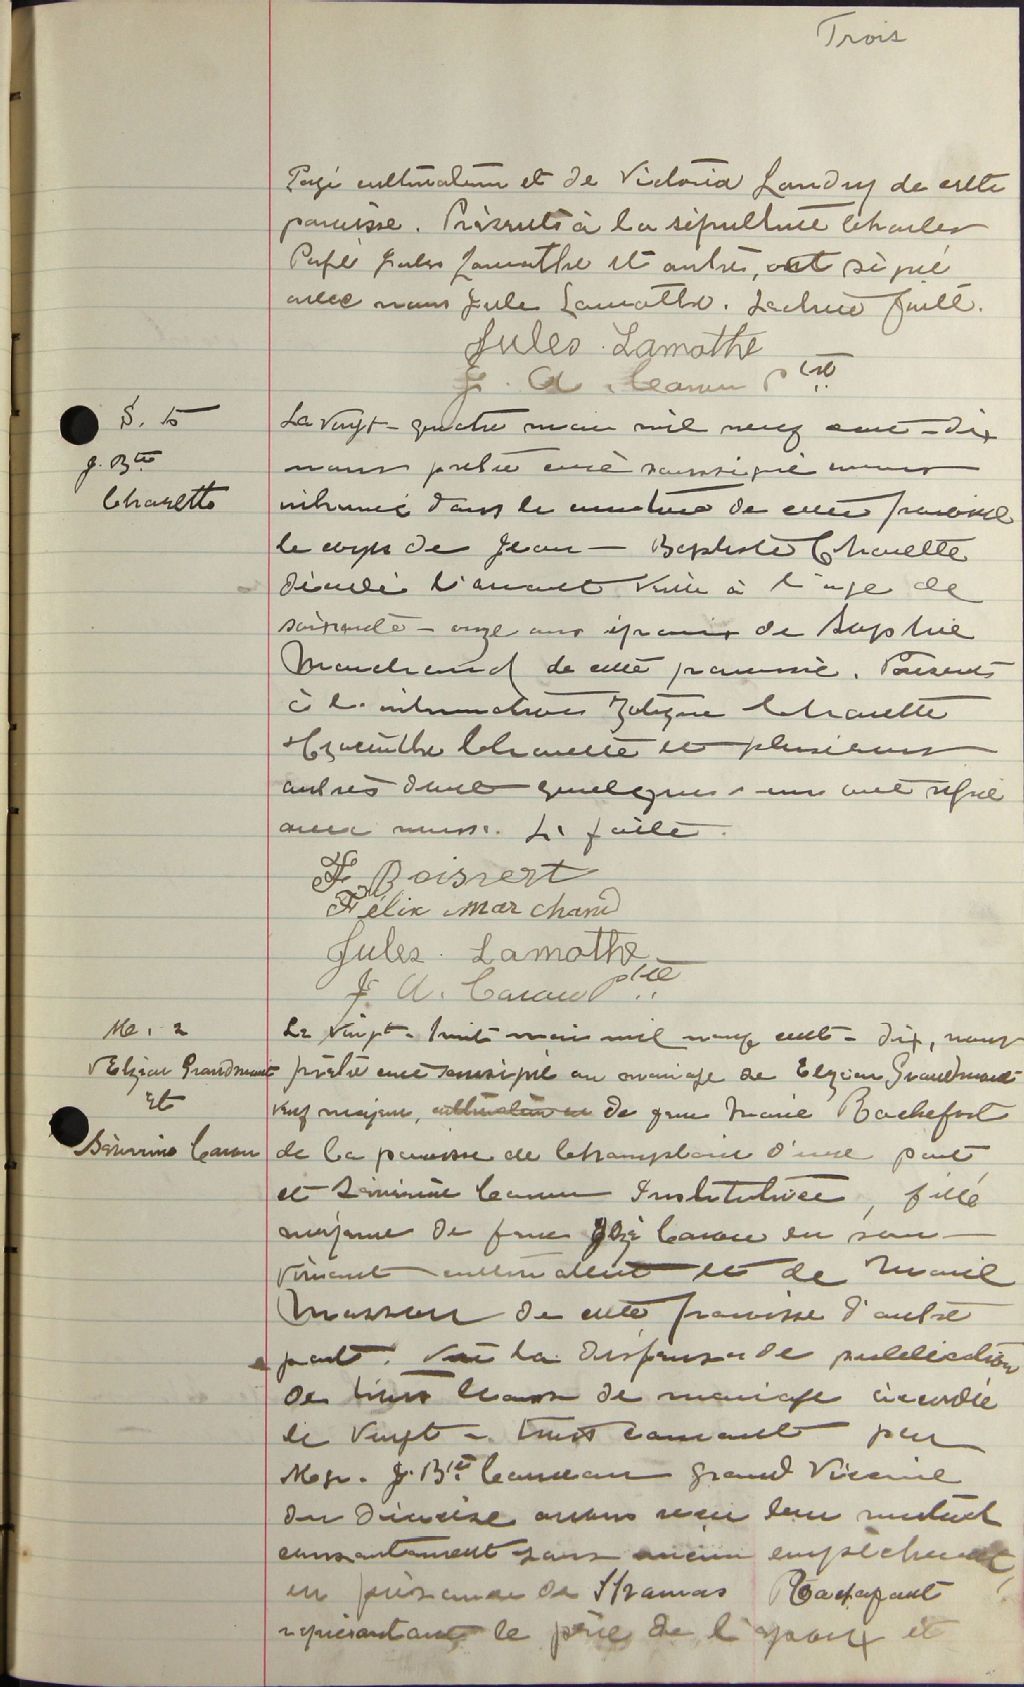 Trois
Pagé cultivateur et de Victoria Landry de cette
paroisse. Présents à la sépulture Charles
Pagé Jules Lamothe et autres, ont signé
avec nous Jules Lamothe. Lecture faite.
Jules Lamothe
J. A. Caron Ptre
S. 5
J. Bte
Charette
Le vingt-quatre mars mil neuf cent-dix
nous prêtre curé soussigné avons
inhumé dans le cimetière de cette paroisse
le corps de Jean-Baptiste Charette
décédé l'avant veille à l'age de
soixante-onze ans époux de Sophie
Marchand de cette paroisse. Présents
à l'inhumation Zotique Charette
Hyacinthe Charette et plusieurs
autres dont quelques-uns ont signé
avec nous. L. faite.
F Boisvert
Félix Marchand
Jules Lamothe
J. A. Caron Ptre
M. 2
Elzéar Grandmont
et
Séverine Caron
Le vingt-huit mars mil neuf cent-dix, nous
prêtre curé soussigné au mariage de Elzéar Grandmont
veuf majeur, de feue Marie Rochefort
de la paroisse de Champlain d'une part
et Séverine Caron Institutrice, fille
majeure de feu Caron en son
vivant cultivateur et de Marie
Masson de cette paroisse d'autre
part. Vu la dispense de publication
de bans de mariage accordée
le vingt-trois courant par
Mgr. J. Bte grand Vicaire
du diocèse avons reçu leur mutuel
consentement sans aucun empêchement,
en présence de Thomas
représentant le père de l'époux et